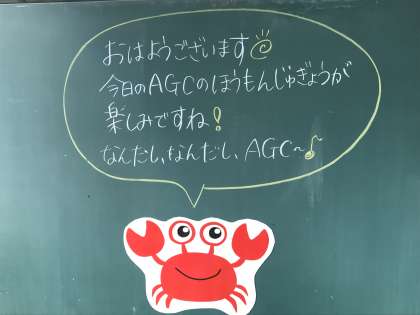 おはようございます
今日のAGCのほうもんじゅぎょうが
楽しみですね!
なんだし、なんだし、AGC〜♪